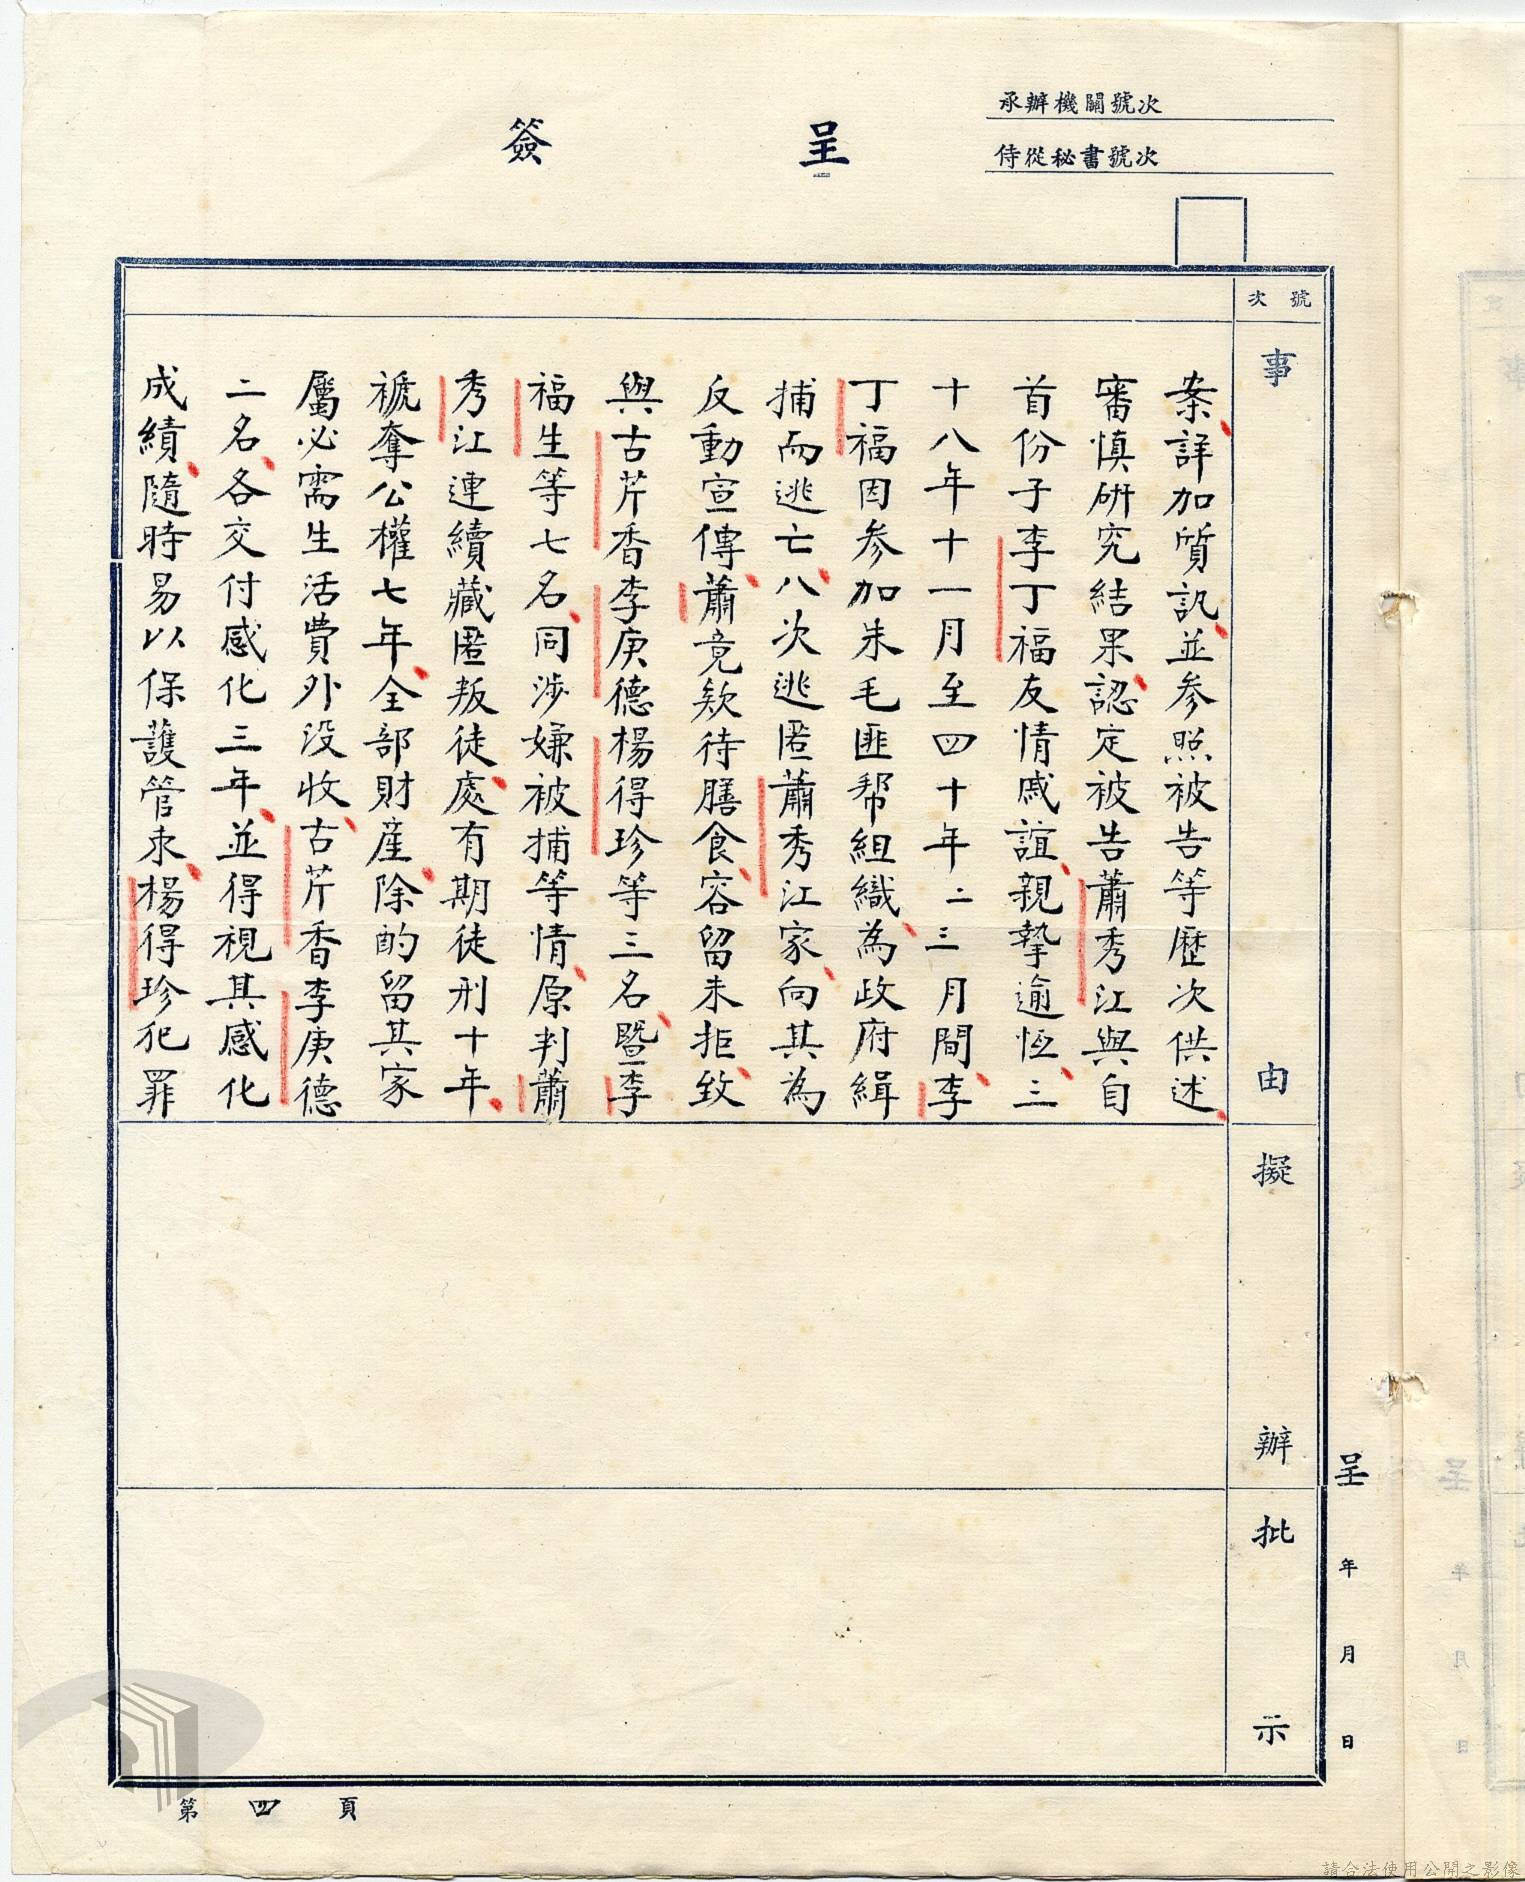 承辦機關號次
侍從秘書號次
呈簽
號次
事由
案詳加質訊並參照被告等歷次供述
審慎研究結果認定被告蕭秀江與自
首份子李丁福友情戚誼親摯逾恆三
十八年十一月至四十年二三月間李
丁福因參加朱毛匪幫組織為政府緝
捕而逃亡八次逃匿蕭秀江家向其為
反動宣傳蕭竟欵待膳食容留未拒致
與古芹香李庚德楊得珍等三名暨李
福生等七名同涉嫌被捕等情原判蕭
秀江連續藏匿叛徒處有期徒刑十年
褫奪公權七年全部財產除酌留其家
屬必需生活費外没收古芹香李庚德
二名各交付感化三年並得視其感化
成績隨時易以保護管束楊得珍犯罪
擬辦
批示
呈 年 月 日
第四頁
請合法使用公開之影像